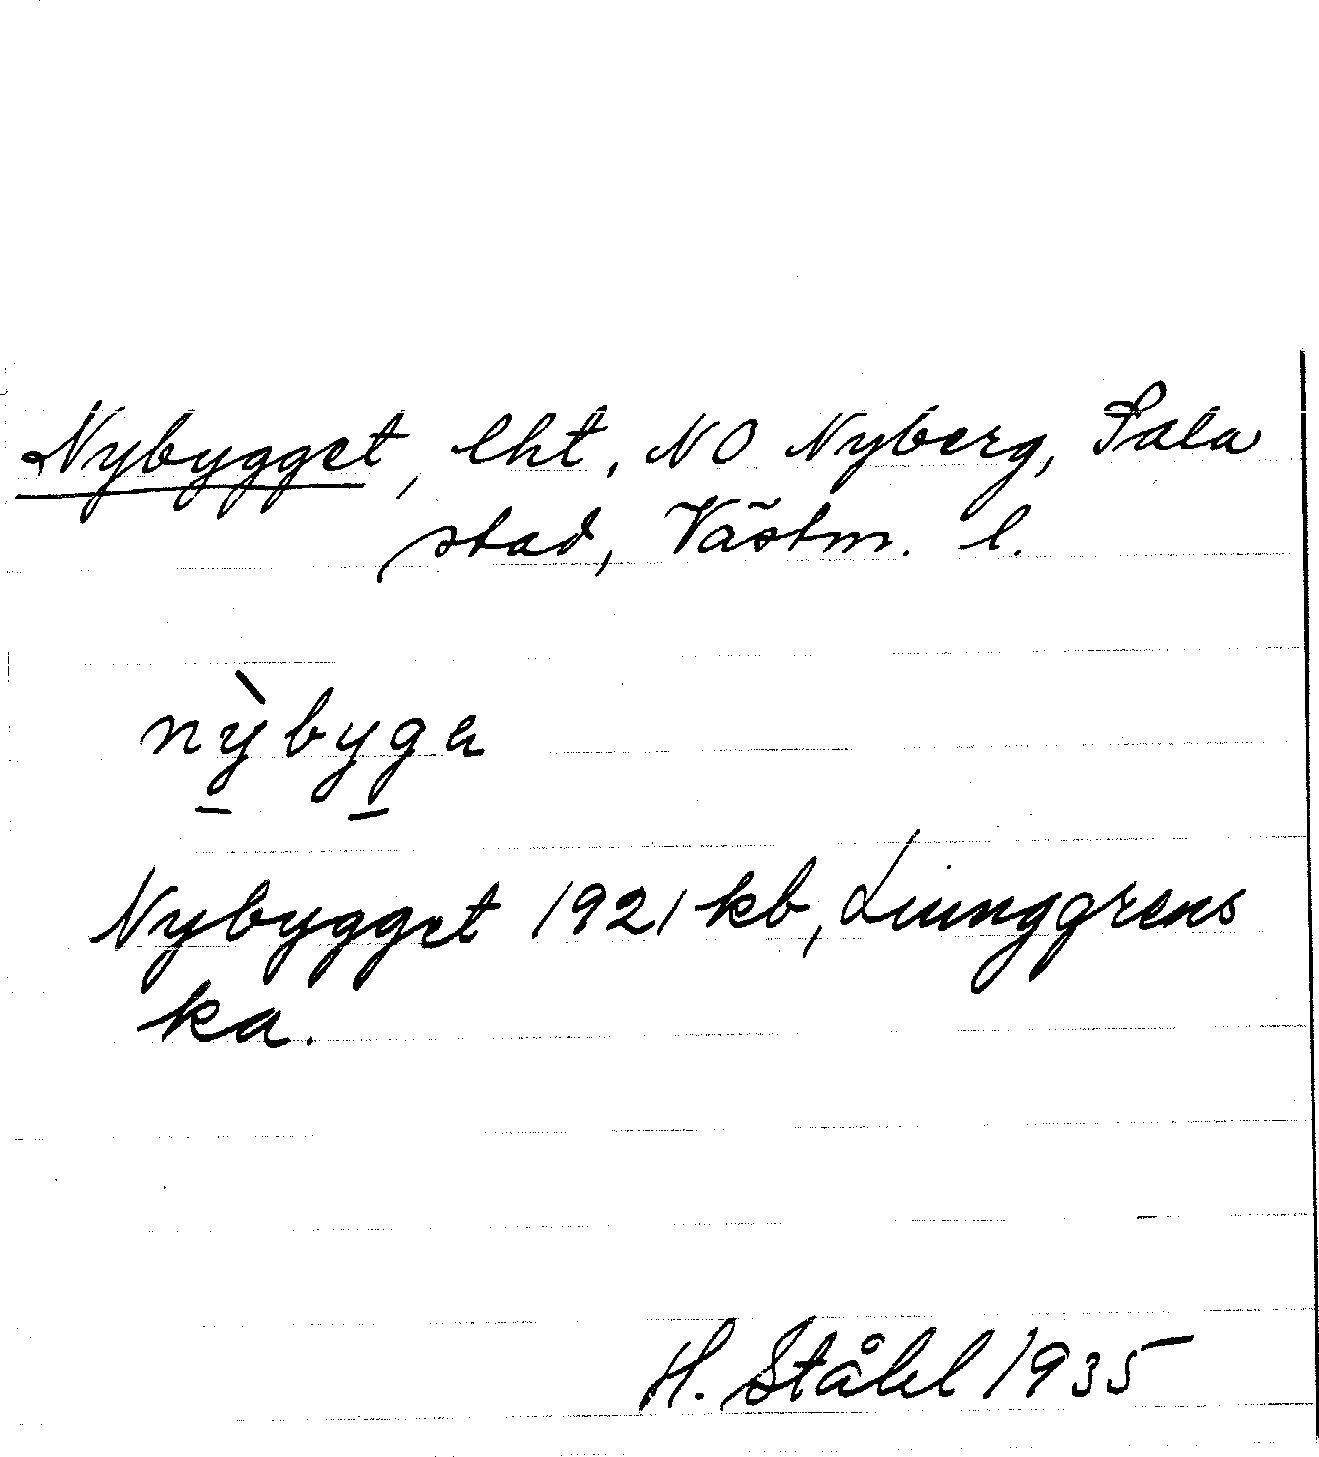 Nybygget, lht, NO Nyberg, Sala
stad, Västm. l.
nỳbyga
Nybygget 1921 kb, Liunggrens
ka.
H. Ståhl 1935